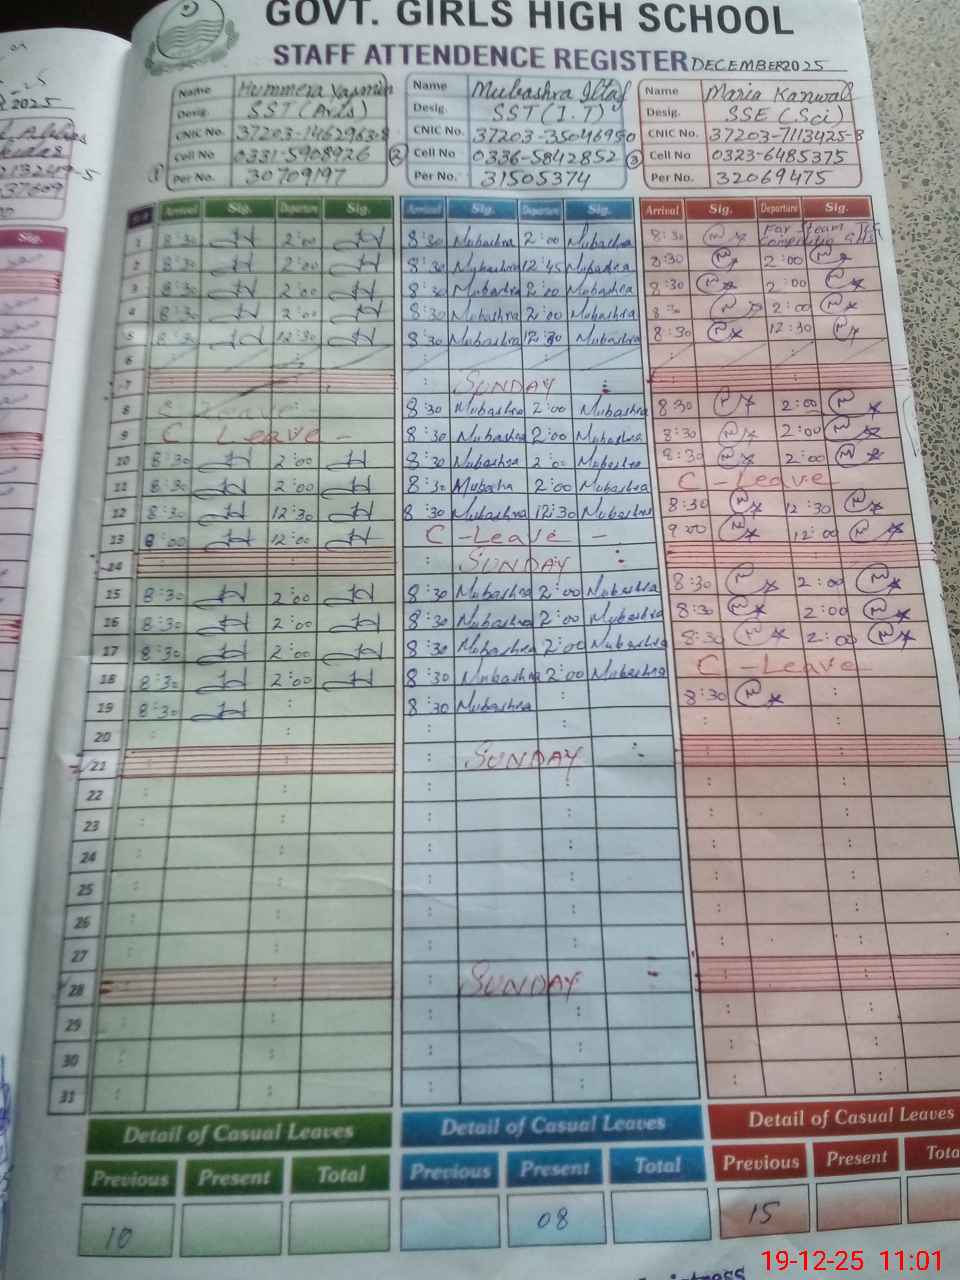 GOVT. GIRLS HIGH SCHOOL
STAFF ATTENDENCE REGISTER DECEMBER 2025
2025
Name Hummera Yasmin Name Mubashra Iltaf Name Maria Kanwal
Desig. SST (Arts) Desig. SST (I.T) Desig. SSE (Sci)
CNIC No. 37203-1462963-8 CNIC No. 37203-3504695-0 CNIC No. 37203-7113425-8
① Cell No 0331-5908926 ② Cell No 0336-5842852 ③ Cell No 0323-6485375
Per No. 30709197 Per No. 31505374 Per No. 32069475
Sig.
Arrival Sig. Departure Sig. Arrival Sig. Departure Sig. Arrival Sig. Departure Sig.
1 8:30 2:00 8:30 Mubashra 2:00 Mubashra 8:30 For Steam
2 8:30 2:00 8:30 Mubashra 12:45 Mubashra 8:30 2:00
3 8:30 2:00 8:30 Mubashra 2:00 Mubashra 8:30 2:00
4 8:30 2:00 8:30 Mubashra 2:00 Mubashra 8:30 2:00
5 8:30 12:30 8:30 Mubashra 12:30 Mubashra 8:30 12:30
6
7 SUNDAY
8 C Leave 8:30 Mubashra 2:00 Mubashra 8:30 2:00
9 C Leave - 8:30 Mubashra 2:00 Mubashra 8:30 2:00
10 8:30 2:00 8:30 Mubashra 2:00 Mubashra 8:30 2:00
11 8:30 2:00 8:30 Mubashra 2:00 Mubashra C - Leave
12 8:30 12:30 8:30 Mubashra 12:30 Mubashra 8:30 12:30
13 8:00 12:00 C - Leave - 9:00 12:00
14 SUNDAY
15 8:30 2:00 8:30 Mubashra 2:00 Mubashra 8:30 2:00
16 8:30 2:00 8:30 Mubashra 2:00 Mubashra 8:30 2:00
17 8:30 2:00 8:30 Mubashra 2:00 Mubashra 8:30 2:00
18 8:30 2:00 8:30 Mubashra 2:00 Mubashra C - Leave
19 8:30 8:30 Mubashra 8:30
20
21 SUNDAY
22
23
24
25
26
27
28 SUNDAY
29
30
31
Detail of Casual Leaves Detail of Casual Leaves Detail of Casual Leaves
Previous Present Total Previous Present Total Previous Present
10 08 15
19-12-25 11:01